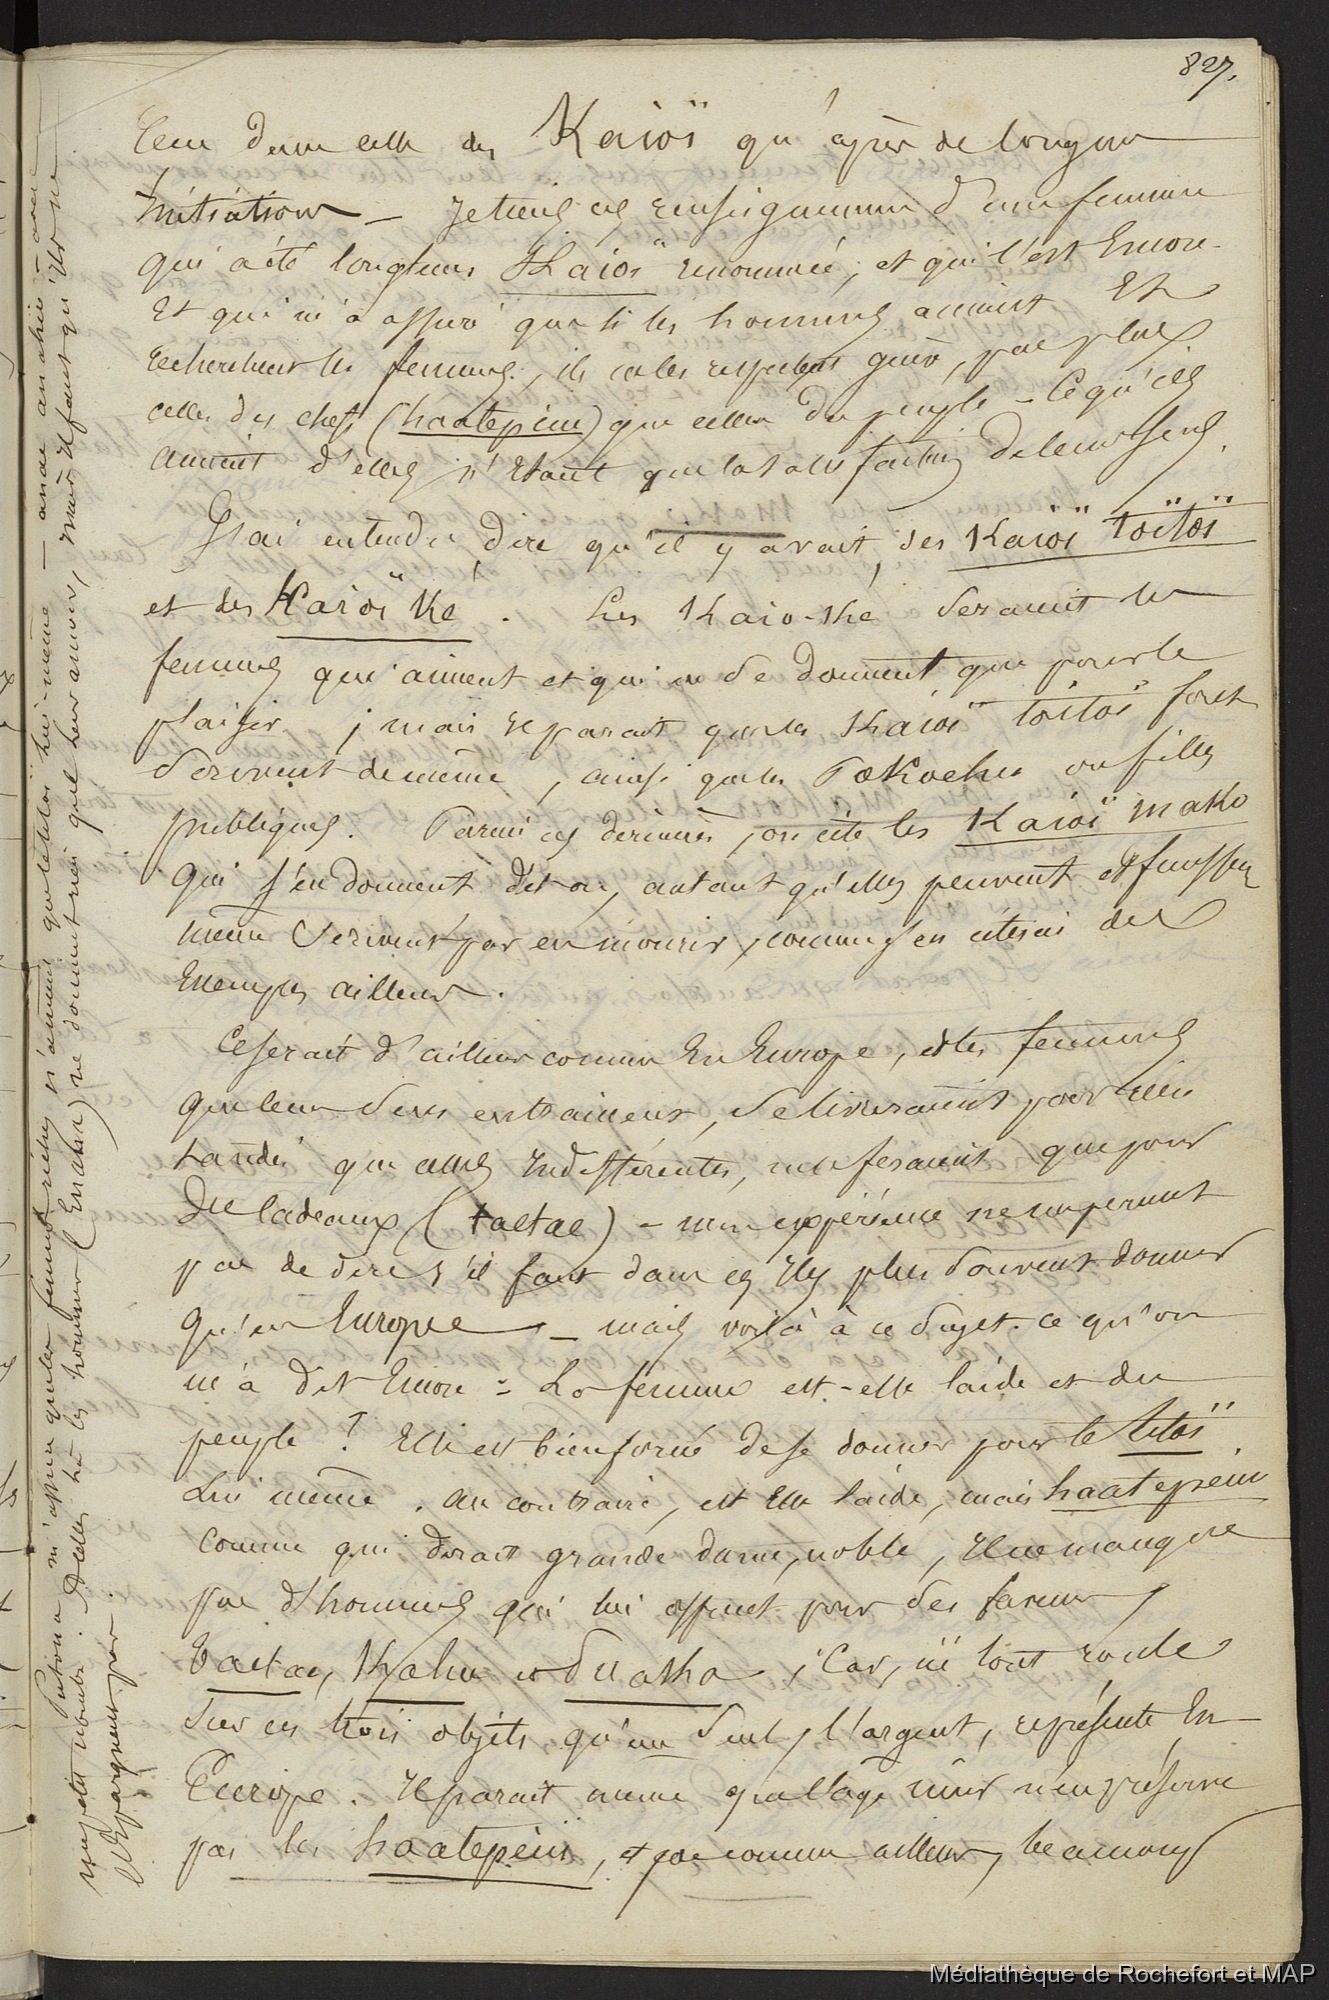 827.
celle des Kaioï qu'après de longues
initiations — Je tiens ces renseignemens d'une femme
qui a été longtems Kaioï renommée, et qui l'est encore.
Et qui m'a assuré que si les hommes aiment Et
recherchent les femmes, ils ne les respectent guère, pas plus
celles des chefs (haatepeiu) que celles du peuple — ce qu'ils
aiment d'elles n'étant que la satisfaction de leurs sens.
J'ai entendu dire qu'il y avait des Kaioï toïtoï
et des Kaioï Ké. Les Kaio-Ké seraient les
femmes qui aiment et qui ne se donnent que pour le
plaisir ; mais il parait que les Kaioï toitoï font
souvent de même, ainsi que les ou filles
publiques. Parmi ces dernières, on cite les Kaioï mako
qui s'en donnent dit on, autant qu'elles peuvent et finissent
même souvent par en mourir, comme j'en citerai des
Exemples ailleurs.
Ce serait d'ailleurs comme En Europe, et les femmes
que leurs sens entrainent, se livreraient pour rien
tandis que celles indifférentes, ne le feraient que pour
des Cadeaux (taetae) — mon expérience ne me permet
pas de dire s'il faut dans ces Iles plus souvent donner
qu'en Europe — mais voilà à ce sujet ce qu'on
m'a dit Encore = La femme est-elle laide et du
peuple ? Elle est bien forcée de se donner pour le titoï
lui même. Au contraire, est Elle laide, mais haatepeiu
comme qui dirait grande dame, noble, Il ne manque
pas d'hommes qui lui offrent pour des faveurs
taetae, Kahu et Duaka ; Car, ici tout roule
sur ces trois objets qu'un seul, l'argent, représente En
Europe. Il parait même que l'âge mûr n'en préserve
pas les haatepeiu, et que comme ailleurs, beaucoup
Putona m'assure que les femmes riches n'aiment que le titoï lui-même —
un petit nombre. D'elles là les hommes (Enana) ne donnent rien que leur amour, mais il faut qu'ils ne
l'épargnent pas.
Médiathèque de Rochefort et MAP